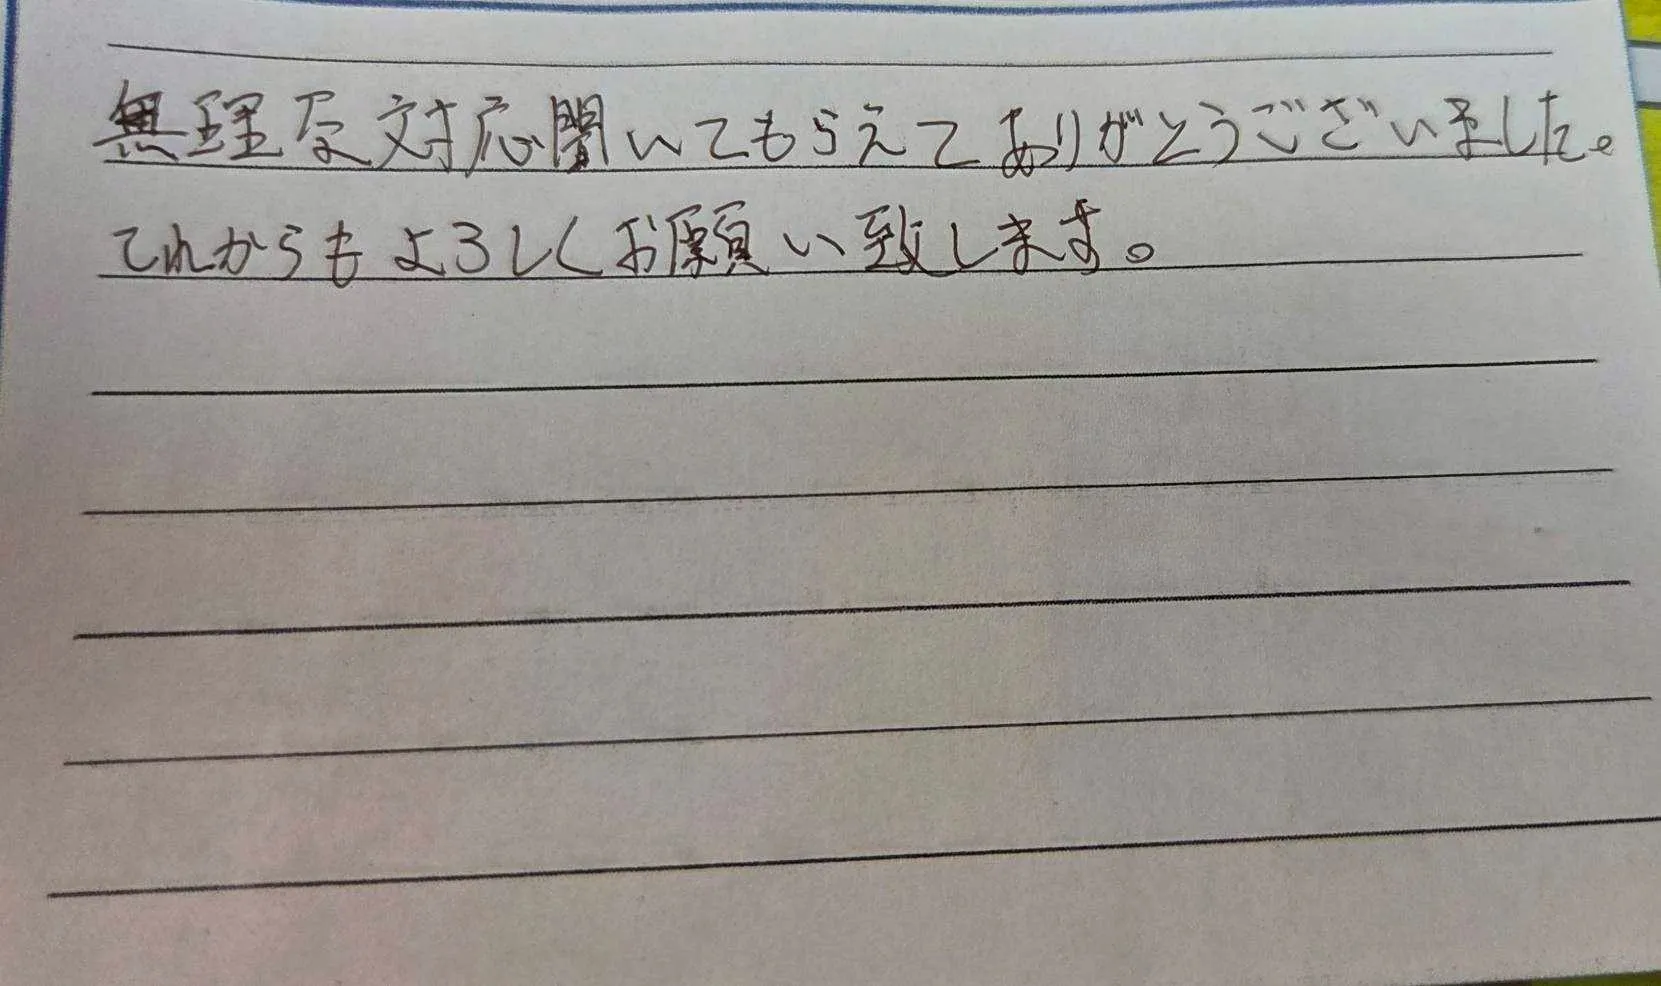 無理な対応聞いてもらえてありがとうございました。
これからもよろしくお願い致します。